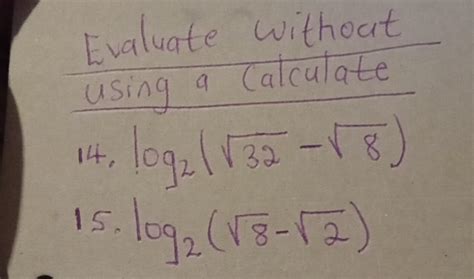 Evaluate without
using a Calculate
14. log₂(√32 - √8)
15. log₂(√8-√2)